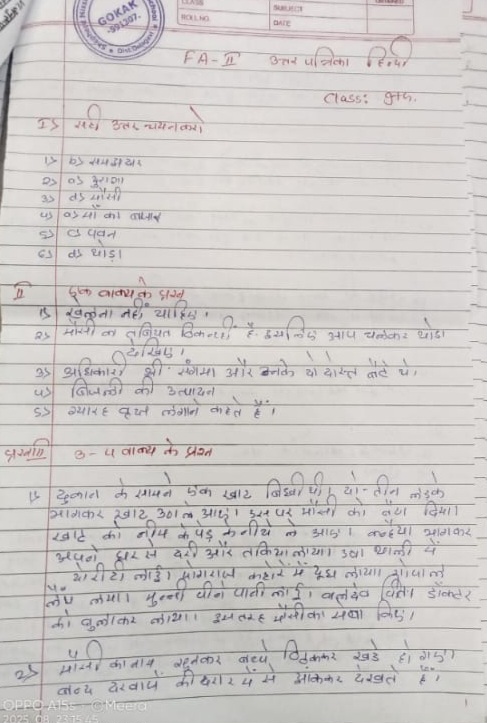 GOKAK
-591307.
CLASS
SUBJECT
ROLL NO.
DATE
FA-II उत्तर पत्रिका हिन्दी
Class: 9th.
I> सही उत्तर चयनकरो
1> b> समझाकर
2>
3> d> मौसी
4> a> माँ का
5> c> पवन
6> d> थोड़ा
II एक वाक्य के प्रश्न
1> खेलना नहीं चाहिए।
2> मौसी की तबियत ठिक नहीं है. इसलिए आप चलकर थोडा
देखिए।
3> अधिकारी श्री. और उनके दो दोस्त लेटे थे।
4> बिजली की उत्पादन
5> ग्यारह वृक्ष लगाने कहते हैं।
प्रश्नIII 3-4 वाक्य के प्रश्न
1> दुकान के सामने एक खाट बिछी थी। दो-तीन लड़के
भागकर खाट उठा ले आए। इस पर मौसी को लेटा दिया।
खाट को नीम के पेड़ के नीचे ले आए। कन्हैया भागकर
अपने घर से दरी और तकिया लाया। थाली में
दो रोटी लाई। कटोरे में दूध लाया। गोपाल
लैंप लाया। मुन्नी पीने पानी लाई। बलदेव डॉक्टर
को बुलाकर लाया। इस तरह मौसी का सेवा किए।
2> मौसी का नाम सुनकर बच्चे ठिठककर खडे हो गए।
बच्चे दरवाजे की दरार में से झाँककर देखते हैं।
OPPO A15s Meera
2025.08.23 15:45